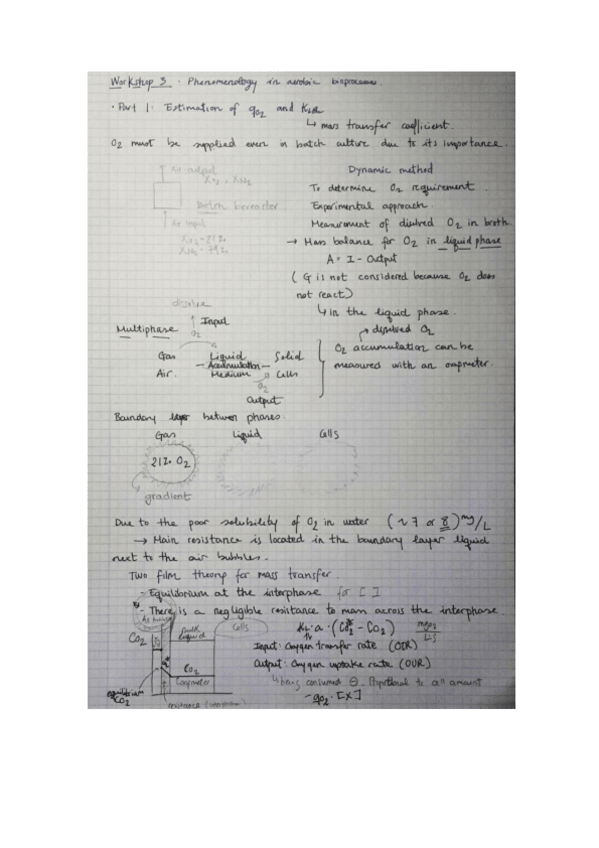 Workshop 3. Phenomenology in aerobic bioprocesses.
· Part 1: Estimation of qO2 and KLa
↳ mass transfer coefficient.
O2 must be supplied even in batch culture due to its importance.
Air output
Dynamic method
To determine O2 requirement.
bioreactor
Experimental approach.
Air input
Measurement of disolved O2 in broth
→ Mass balance for O2 in liquid phase
A = I - Output
( G is not considered because O2 does
not react)
↳ in the liquid phase.
dissolve
Input
O2
Multiphase
Gas Liquid Solid
Accumulation
Air. Medium Cells
O2
Output
disolved O2
O2 accumulation can be
measured with an oxymeter.
Boundary layer between phases.
Gas Liquid Cells
21% O2
gradient
Due to the poor solubility of O2 in water (~ 7 or 8) mg/L
→ Main resistance is located in the boundary layer liquid
next to the air bubbles.
Two film theory for mass transfer.
- Equilibrium at the interphase for [ ]
- There is a negligible resistance to mass across the interphase.
Air bubble
bulk liquid
Cells
CO2
KL·a · (CO2* - CO2)
Input: Oxygen transfer rate (OTR)
CO2
Output: Oxygen uptake rate (OUR)
Oxymeter
↳ being consumed ⊖. Proportional to cell amount
equilibrium
CO2
- qO2 · [X]
resistance (interphase)